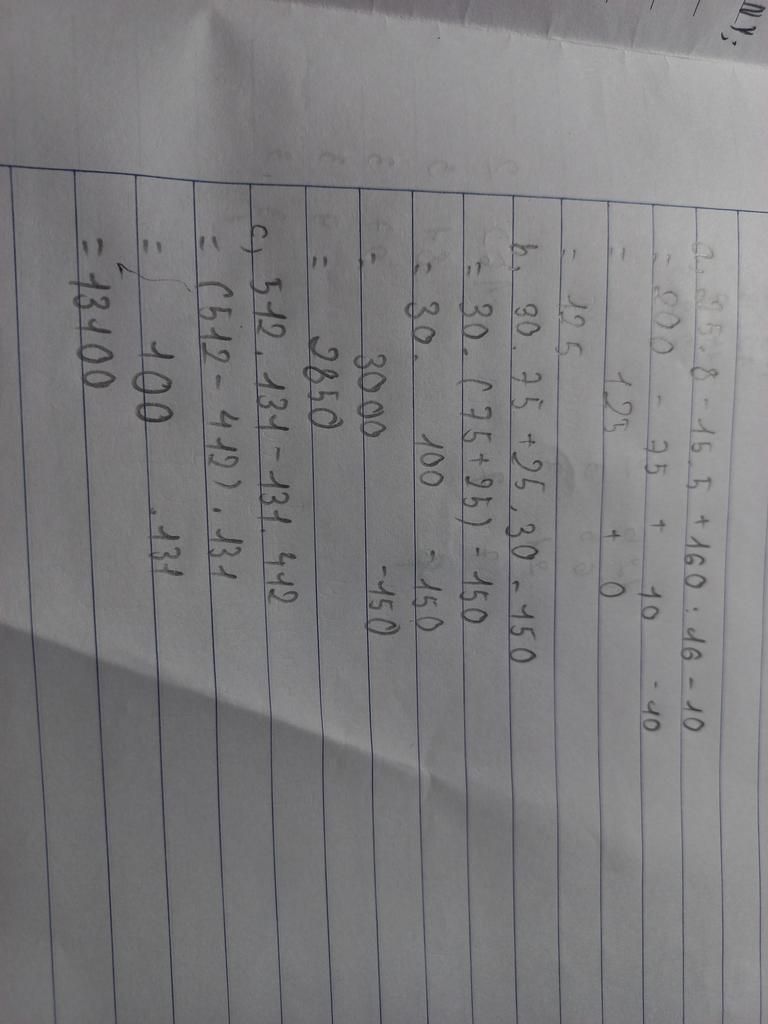 a, 25 . 8 - 15 . 5 + 160 : 16 - 10
= 200 - 75 + 10 - 10
= 125 + 0
= 125
b, 30 . 75 + 25 . 30 - 150
= 30 . (75 + 25) - 150
= 30 . 100 - 150
= 3000 - 150
= 2850
c, 512 . 131 - 131 . 412
= (512 - 412) . 131
= 100 . 131
= 13100